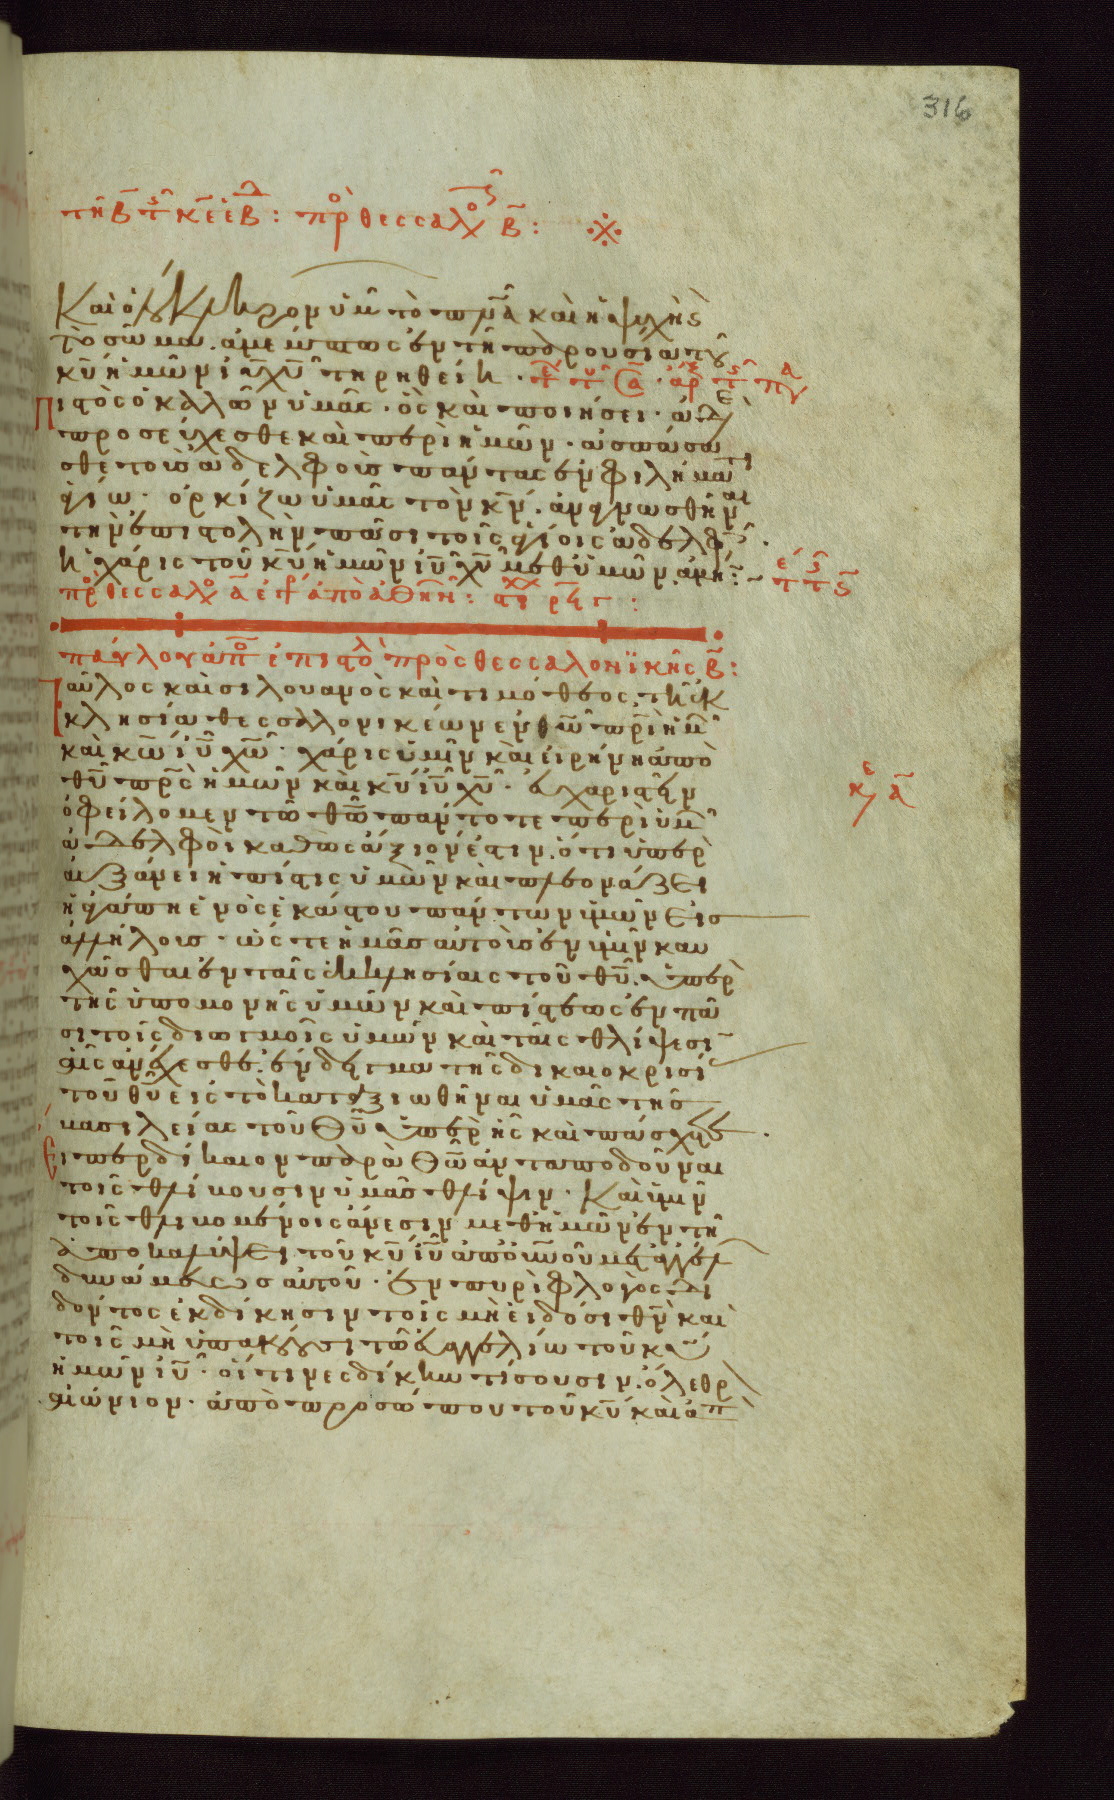 316
τῆ β τῆς κε ἑβ: πρ θεσσαλ β:
Καὶ ὁλόκληρον ὑμῶν τὸ πνα καὶ ἡ ψυχὴ ς
τὸ σῶμα. ἀμέμπτως ἐν τῆ παρουσία του
κυ ἡμῶν ιυ χυ τηρηθείη.
Πιστὸς ὁ καλῶν ὑμᾶς. ὃς καὶ ποιήσει. ἀδελ
προσεύχεσθε καὶ περὶ ἡμῶν. ἀσπάσα
σθε τοὺς ἀδελφοὺς πάντας ἐν φιλήματι
ἁγίω. ὁρκίζω ὑμᾶς τὸν κν. ἀναγνωσθῆναι
τὴν ἐπιστολὴν πᾶσι τοῖς ἁγίοις ἀδελφ
ἡ χάρις τοῦ κυ ἡμῶν ιυ χυ μεθ' ὑμῶν. ἀμήν:
πρ θεσσαλ α ἐγρ ἀπὸ ἀθην: στι ρϟγ:
παύλου ἀπο ἐπιστολ πρὸς θεσσαλονϊκῆς β:
Παῦλος καὶ σιλουανὸς καὶ τιμόθεος, τῆ ἐκ
κλησία θεσσαλονικέων ἐν θω πρι ἡμ
καὶ κω ιυ χω. χάρις ὑμῖν καὶ εἰρήνη ἀπὸ
θυ πρς ἡμῶν καὶ κυ ιυ χυ. εὐχαριστεῖν
ὀφείλομεν τῶ θω πάντοτε περὶ ὑμ
ἀδελφοὶ καθὼς ἄξιόν ἐστιν. ὅτι ὑπερ
αυξάνει ἡ πίστις ὑμῶν καὶ πλεονάζει
ἡ ἀγάπη ἑνὸς ἑκάστου πάντων ὑμῶν εἰς
ἀλλήλοις. ὥστε ἡμᾶς αὐτοὺς ἐν ὑμῖν καυ
χᾶσθαι ἐν ταῖς ἐκκλησίαις τοῦ θυ. ὑπὲρ
τῆς ὑπομονῆς ὑμῶν καὶ πίστεως ἐν πᾶ
σι τοῖς διωγμοῖς ὑμῶν καὶ ταῖς θλίψεσι
αἷς ἀνέχεσθε. ἔνδειγμα τῆς δικαιοκρισί
τοῦ θυ εἰς τὸ καταξιωθῆναι ὑμᾶς τῆς
βασιλείας τοῦ θυ ὑπὲρ ἧς καὶ πάσχετε.
Εἴπερ δίκαιον παρὰ θω ἀνταποδοῦναι
τοῖς θλίβουσιν ὑμᾶς θλίψιν. Καὶ ὑμῖν
τοῖς θλιβομένοις ἄνεσιν μεθ' ἡμῶν ἐν τῆ
ἀποκαλύψει τοῦ κυ ιυ ἀπ' ουνου μετ' ἀγγέλ
δυνάμεως αὐτοῦ. ἐν πυρὶ φλογὸς δι
δόντος ἐκδίκησιν τοῖς μὴ εἰδόσι θν καὶ
τοῖς μὴ ὑπακούουσι τῶ εὐαγγελίω τοῦ κυ
ἡμῶν ιυ. οἵτινες δίκην τίσουσιν. ὄλεθρ
αἰώνιον. ἀπὸ προσώπου τοῦ κυ καὶ ἀπ
κε α